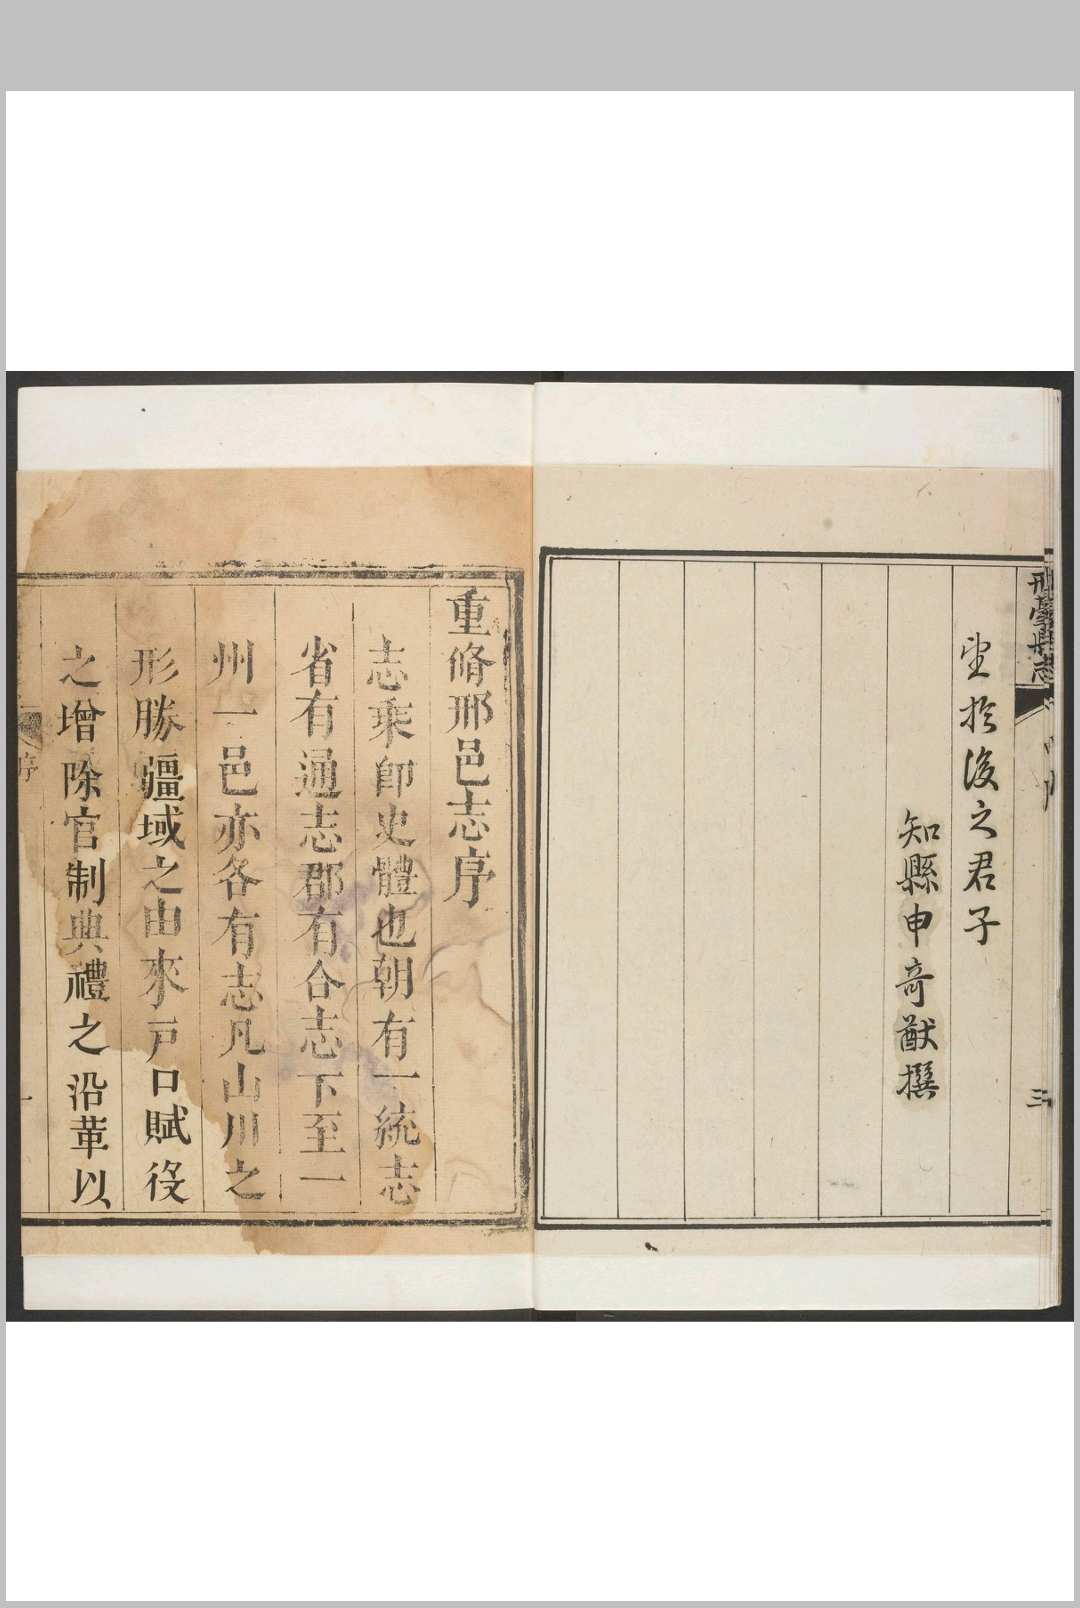 邢臺縣志
三
望於後之君子
知縣申奇猷撰
重脩邢邑志序
志乘卽史體也朝有一統志
省有通志郡有合志下至一
州一邑亦各有志凡山川之
形勝疆域之由來戶口賦役
之增除官制典禮之沿革以
序
一